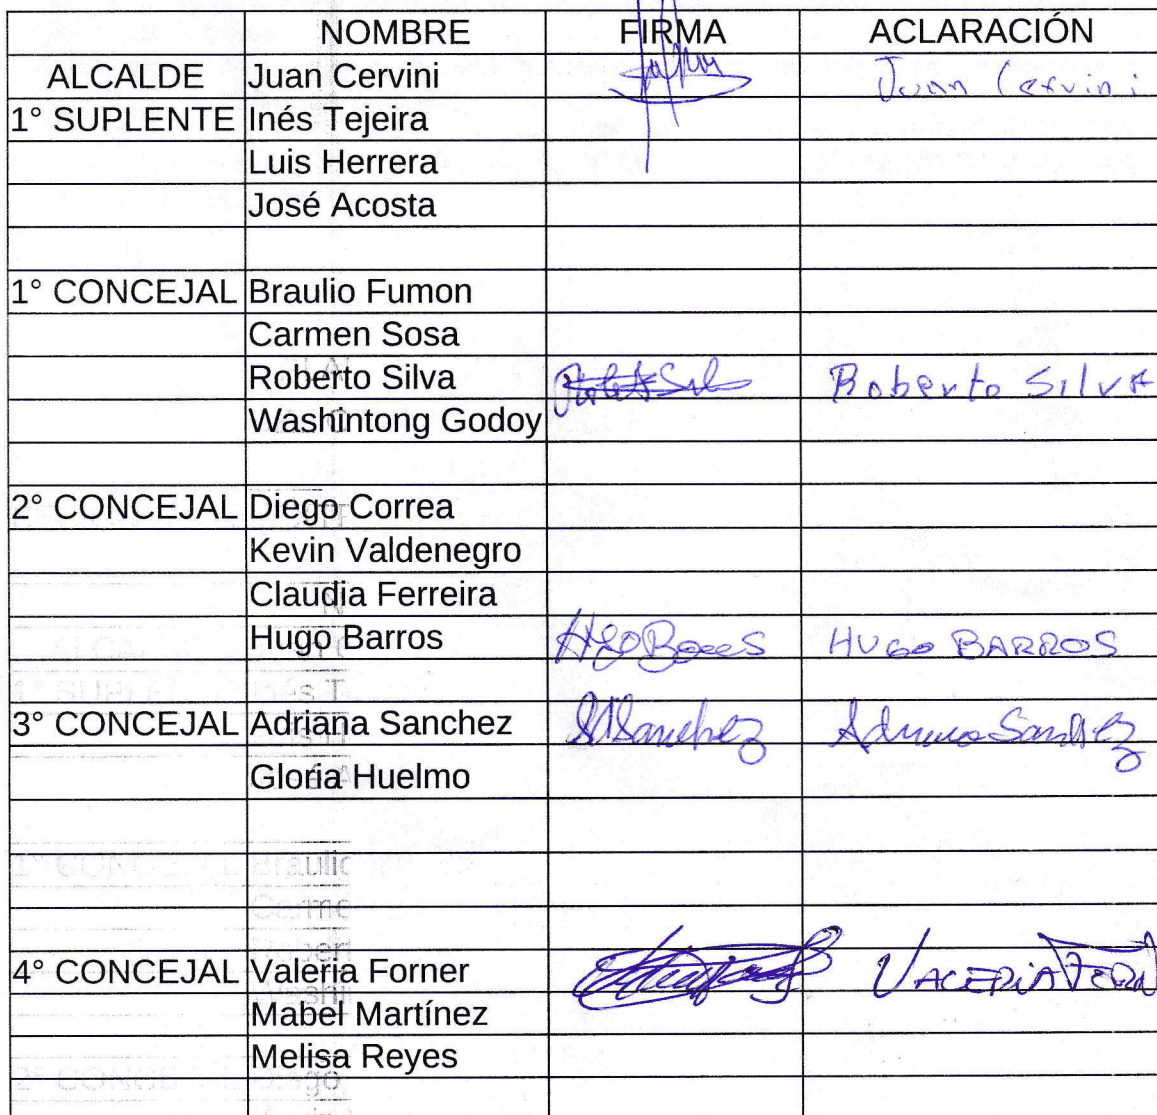 NOMBRE FIRMA ACLARACIÓN
ALCALDE Juan Cervini Juan Cervini
1° SUPLENTE Inés Tejeira
Luis Herrera
José Acosta
1° CONCEJAL Braulio Fumon
Carmen Sosa
Roberto Silva Roberto Silva
Washintong Godoy
2° CONCEJAL Diego Correa
Kevin Valdenegro
Claudia Ferreira
Hugo Barros HUGO BARROS
3° CONCEJAL Adriana Sanchez Sanchez Adriana Sanchez
Gloria Huelmo
4° CONCEJAL Valeria Forner VALERIA
Mabel Martínez
Melisa Reyes